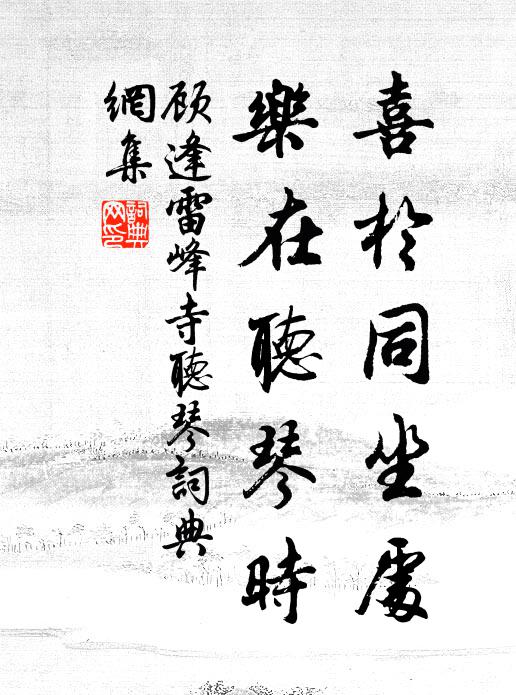 喜於同坐處
樂在聽琴時
顾逢雷峰寺聽琴詞典
網集
詞典網印